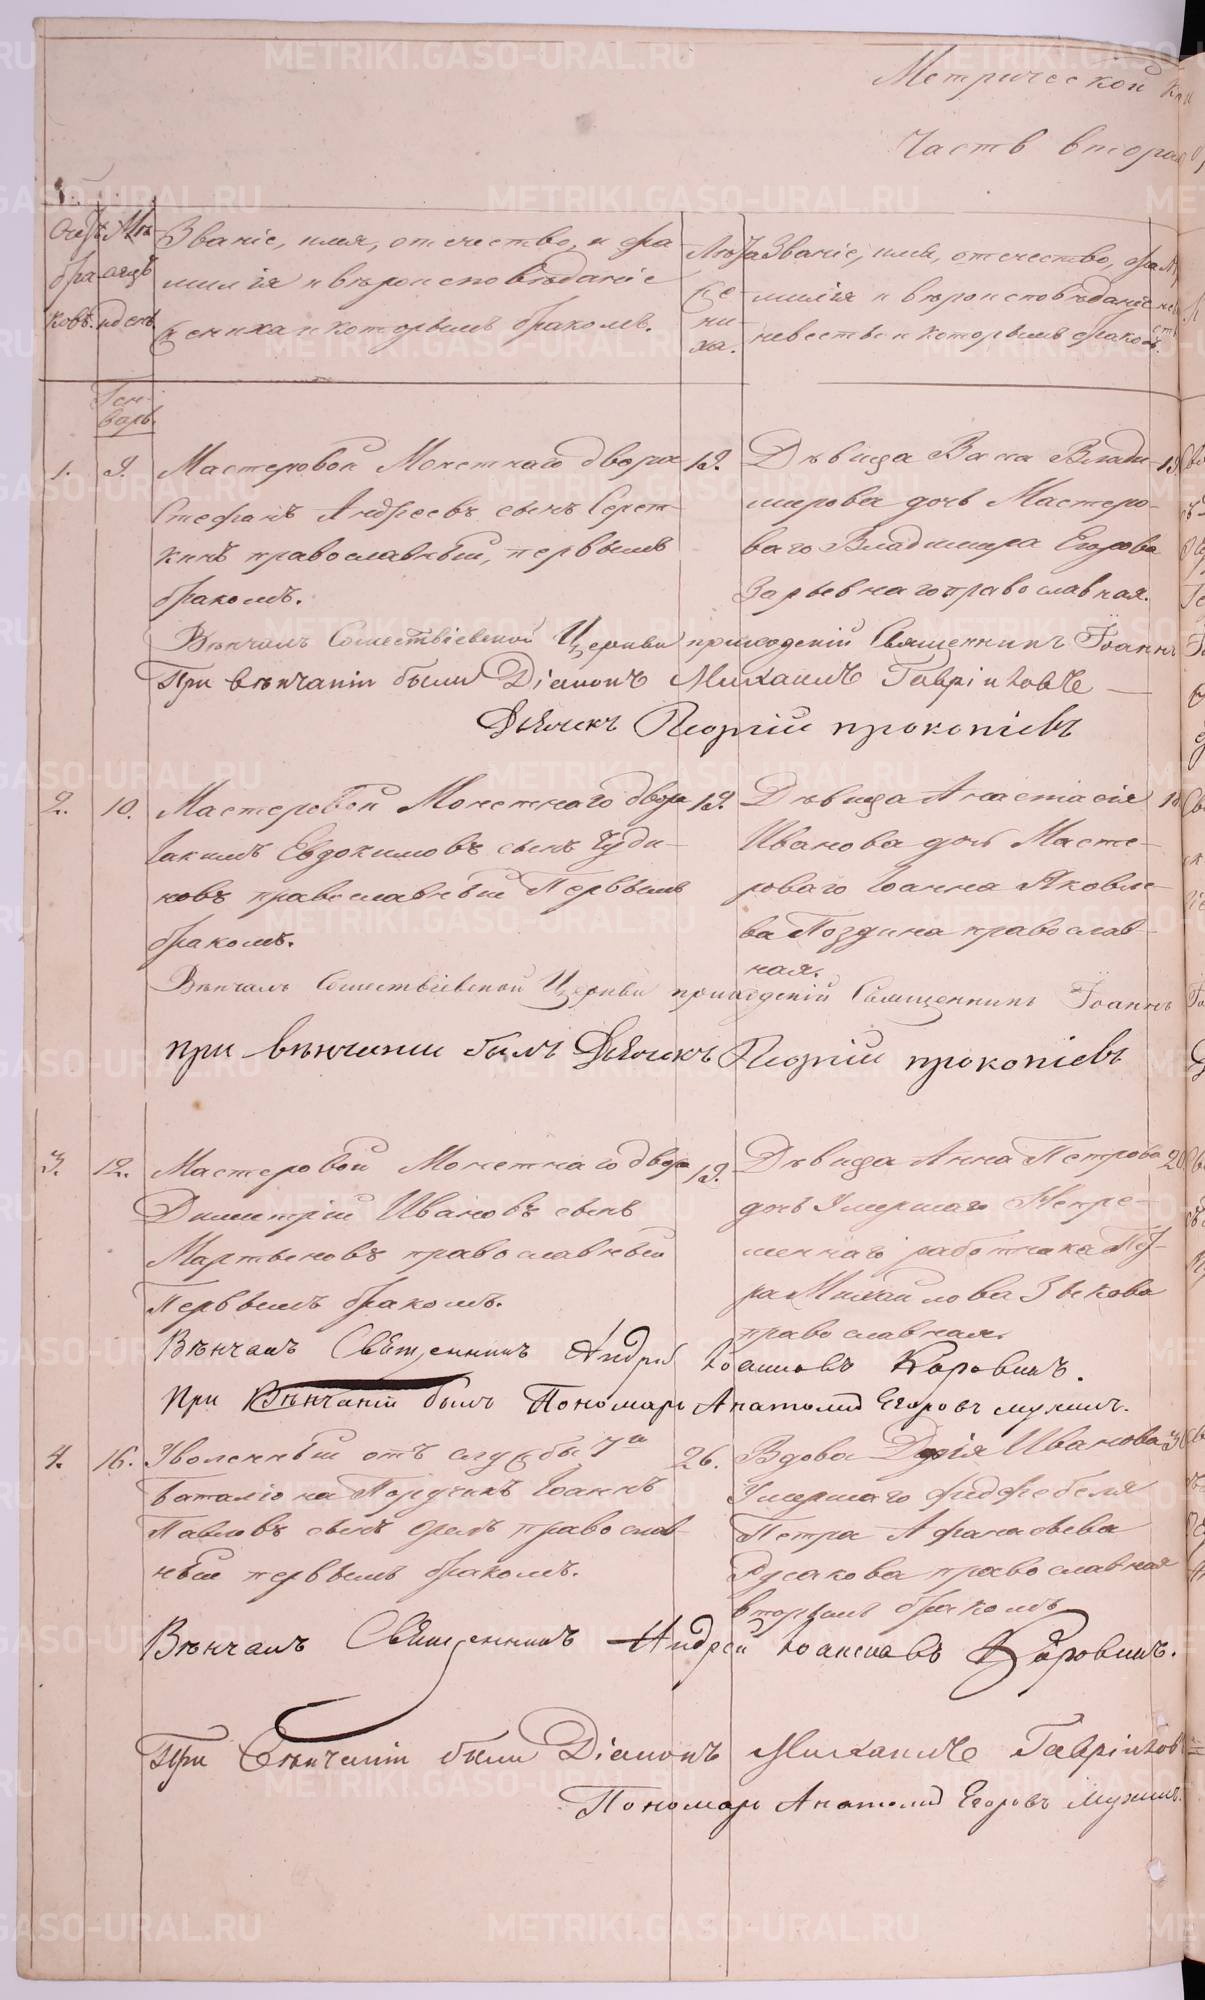 Метрической
Часть вторая
Звание, имя, отечество, и фа
милия и вероисповѣдание
жениха и которымъ бракомъ.
Лѣта
же-
ни-
ха.
Звание, имя, отечество, фа
милия и вероисповѣдание
невесты и которымъ бракомъ.
Ген-
варь.
1.
9.
Мастеровой Монетнаго двора
Стефанъ Андреевъ сынъ
православный, первымъ
бракомъ.
19.
Дѣвица Влади-
мирова дочь Мастеро-
ваго Владимира Егорова
православная.
Вѣнчалъ Сошествіевской Церкви Священникъ Іоаннъ
При вѣнчаніи были Діаконъ Михаилъ Гавріиловъ
Дьячекъ Георгій прокопіевъ
2.
10.
Мастеровой Монетнаго двора
Іакимъ Евдокимовъ сынъ Чуди-
новъ православный Первымъ
бракомъ.
19.
Дѣвица Анастасія
Иванова дочь Масте-
роваго Іоанна Яковле-
ва Поздина православ-
ная.
Вѣнчалъ Сошествіевской Церкви Священникъ Іоаннъ
при вѣнчании былъ Дьячекъ Георгій прокопіевъ
3.
12.
Мастеровой Монетнаго двора
Димитрій Ивановъ сынъ
Мартьяновъ православный
Первымъ бракомъ.
19.
Дѣвица Анна Петрова
дочь Умершаго Непре-
меннаго работника Пет-
ра Михайлова Зыкова
православная.
Вѣнчалъ Священникъ Андрей Іоанновъ Коровинъ.
При Вѣнчаніи былъ Пономарь Анатолій Егоровъ мухинъ.
4.
16.
Уволенный отъ службы 7го
баталіона Іоаннъ
Павловъ сынъ православ-
ный первымъ бракомъ.
26.
Вдова Дарія Иванова
Умершаго Фидфебеля
Петра Афанасьева
Русакова православная
вторымъ бракомъ
Вѣнчалъ Священникъ Андрей Іоанновъ Коровинъ.
При Вѣнчаніи были Діаконъ Михаилъ Гавріилов
Пономарь Анатолій Егоровъ Мухинъ.
METRIKI.GASO-URAL.RU